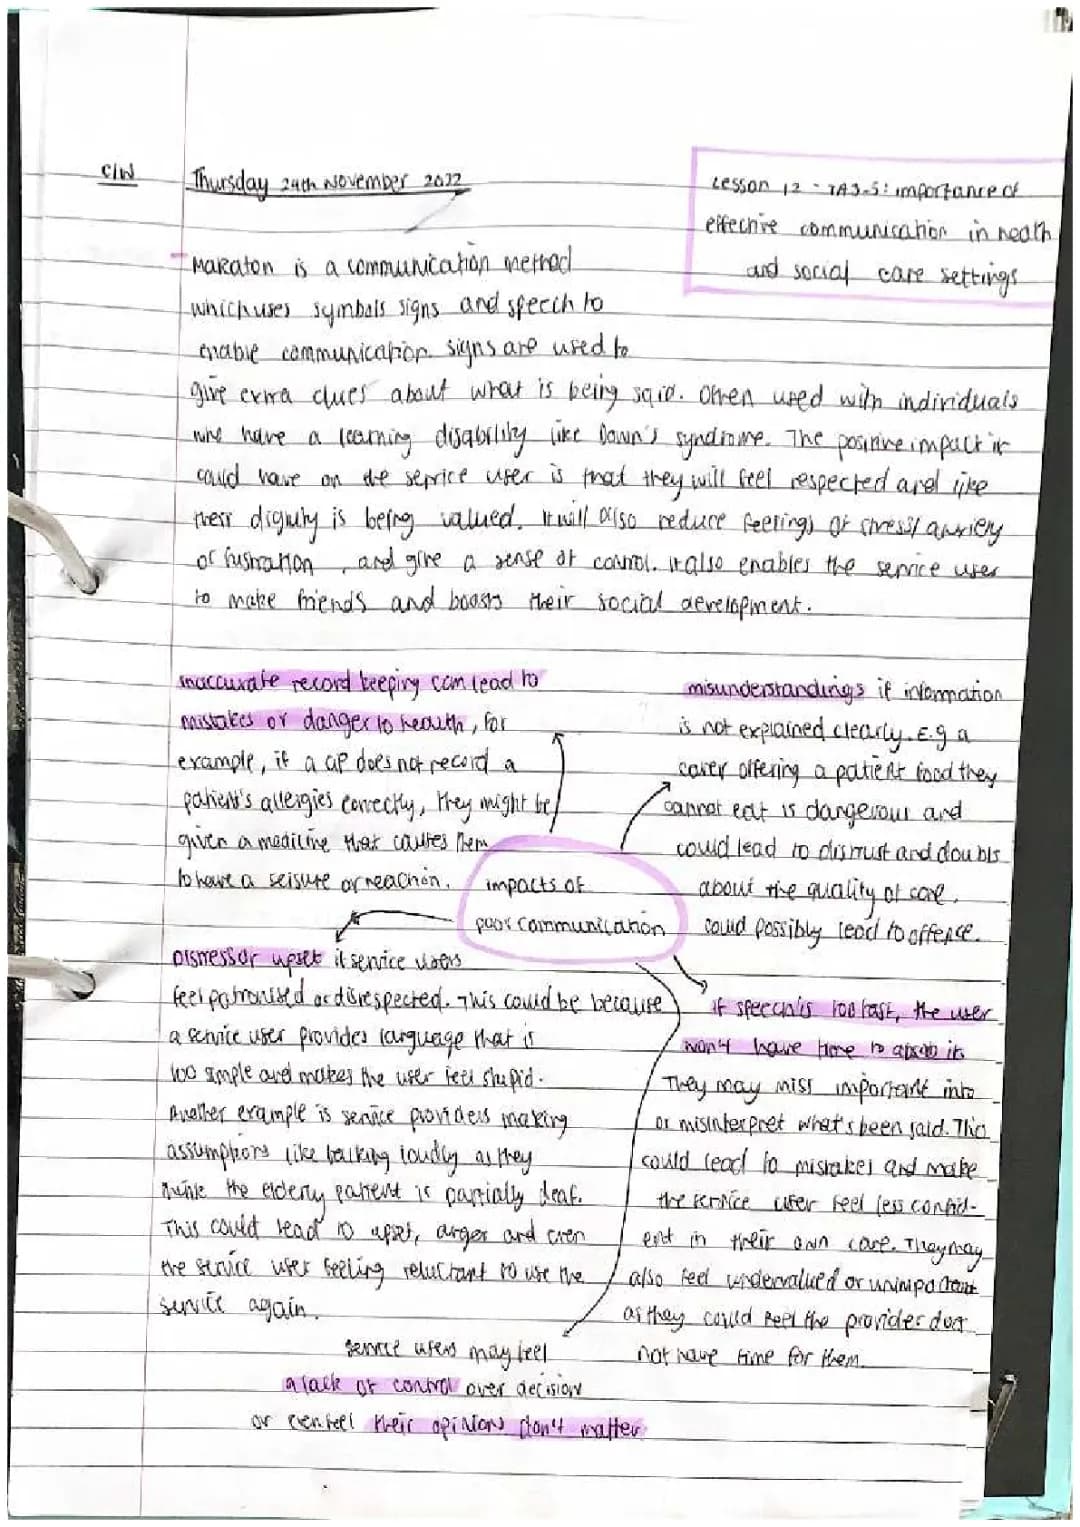 C/W
Thursday 24th November 2022
Lesson 12 - TA3.5: importance of
effective communication in health
and social care settings
Makaton is a communication method
which uses symbols signs and speech to
enable communication. signs are used to
give extra clues about what is being said. Often used with individuals
who have a learning disability like Down's syndrome. The positive impact it
could have on the service user is that they will feel respected and like
their dignity is being valued. It will also reduce feelings of stress/anxiety
or fustration, and give a sense of control. it also enables the service user
to make friends and boosts their social development.
inaccurate record keeping can lead to
mistakes or danger to health, for
example, if a GP does not record a
patient's allergies correctly, they might be
given a medicine that causes them
to have a seisure or reaction.
misunderstandings if information
is not explained clearly. E.g a
carer offering a patient food they
cannot eat is dangerous and
could lead to distrust and doubts
about the quality of care.
could possibly lead to offence.
impacts of
poor communication
Distress or upset if service users
feel patronised or disrespected. This could be because
a service user provides language that is
too simple and makes the user feel stupid.
Another example is service providers making
assumptions like talking loudly as they
think the elderly patient is partially deaf.
This could lead to upset, anger and even
the service user feeling reluctant to use the
service again.
if speech is too fast, the user
won't have time to absob it.
They may miss important info
or misinterpret what's been said. This
could lead to mistakes and make
the service user feel less confid-
ent in their own care. They may
also feel undervalued or unimportant
as they could feel the provider don't
not have time for them.
service users may feel
a lack of control over decision
or even feel their opinions don't matter